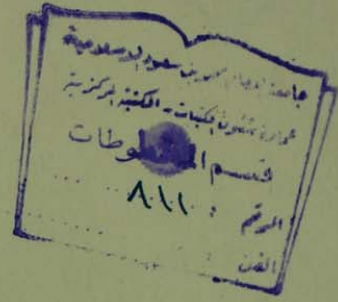 جامعة الإمام محمد بن سعود الإسلامية
عمادة شئون المكتبات - المكتبة المركزية
قسم المخطوطات
الرقم : ٨٠١١
الفن :